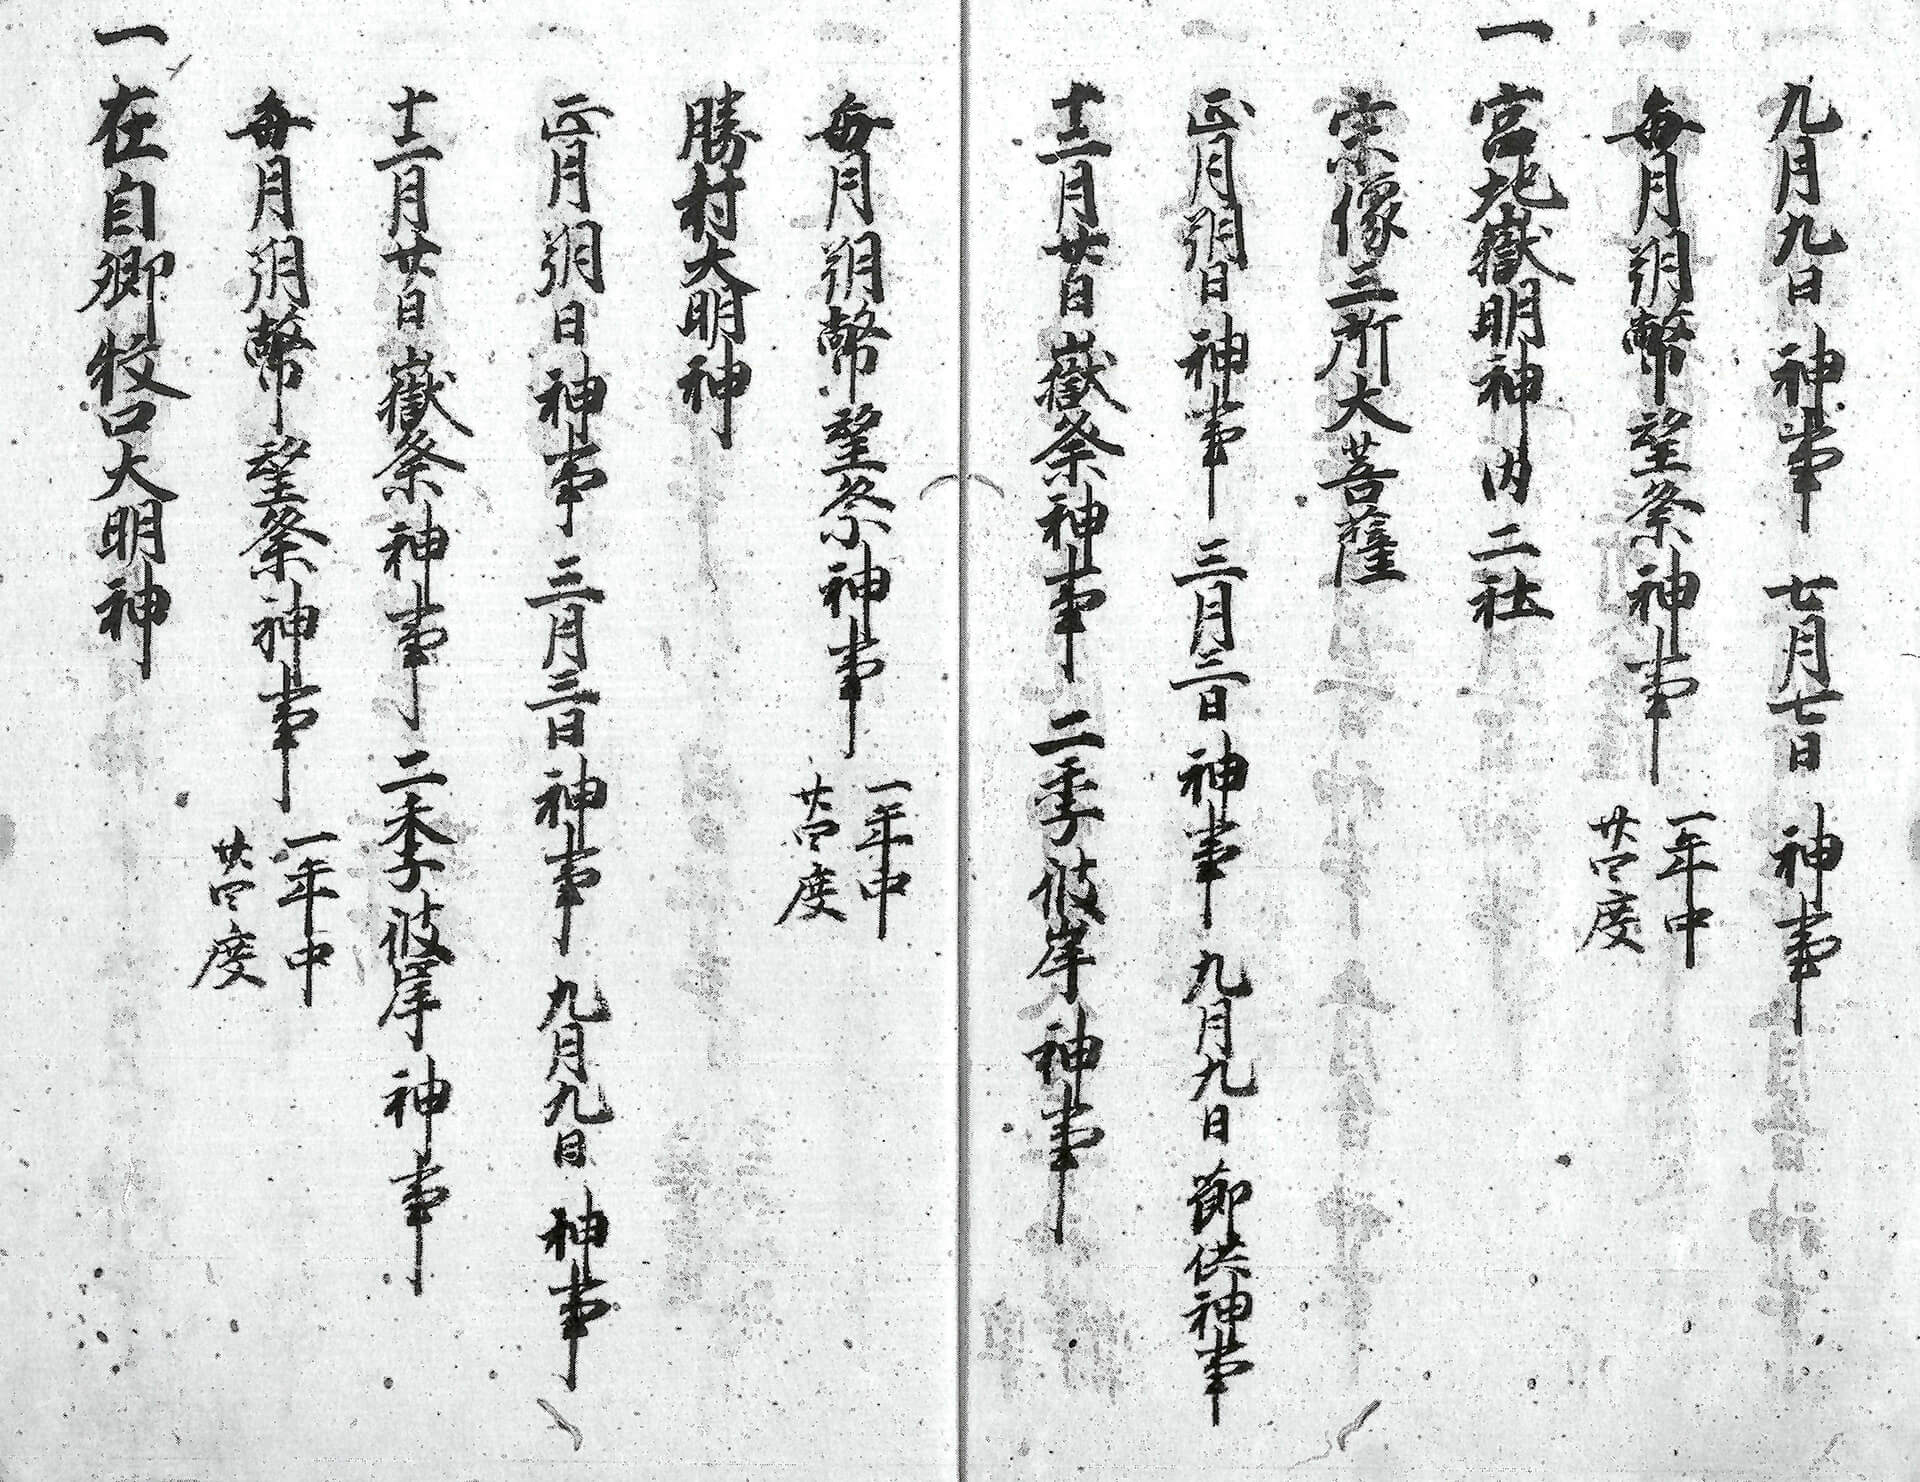 九月九日神事 七月七日神事
毎月朔幣望祭神事 一年中
廿四度
一 宮地嶽明神内二社
宗像三所大菩薩
正月朔日神事 三月三日神事 九月九日節供神事
十二月廿日嶽祭神事 二季彼岸神事
毎月朔幣望祭神事 一年中
廿四度
勝村大明神
正月朔日神事 三月三日神事 九月九日神事
十二月廿日嶽祭神事 二季彼岸神事
毎月朔幣望祭神事 一年中
廿四度
一 在自郷牧口大明神